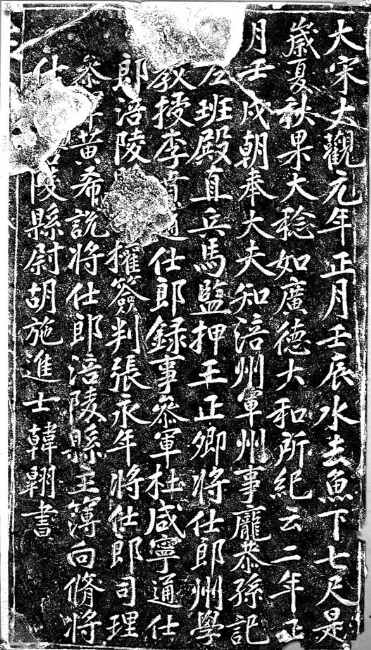 大宋大觀元年正月壬辰水去魚下七尺是
歲夏秋果大稔如廣德大和所紀云二年正
月壬戌朝奉大夫知涪州軍州事龐恭孫記
左班殿直兵馬監押王正卿將仕郎州學
教授李賁通仕郎錄事叅軍杜咸寧通仕
郎涪陵縣權簽判張永年將仕郎司理
叅軍黃希說將仕郎涪陵縣主簿向脩將
仕郎涪陵縣尉胡施進士韓翺書